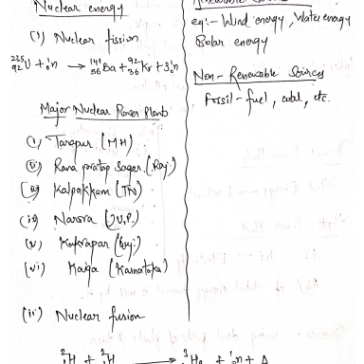 Nuclear energy
(i) Nuclear fission
²³⁵₉₂U + ¹₀n → ¹⁴¹₅₆Ba + ⁹²₃₆Kr + 3¹₀n
Major Nuclear Power Plants
(i) Tarapur (MH)
(ii) Rana pratap Sagar (Raj)
(iii) Kalpakkam (TN)
(iv) Narora (U.P.)
(v) Kakrapar (Guj.)
(vi) Kaiga (Karnataka)
(ii) Nuclear fusion
²₁H + ²₁H → ³₂He + ¹₀n + Δ
eg:- Wind energy, Water energy
Solar energy
Non - Renewable Sources
Fossil - fuel, coal, etc.